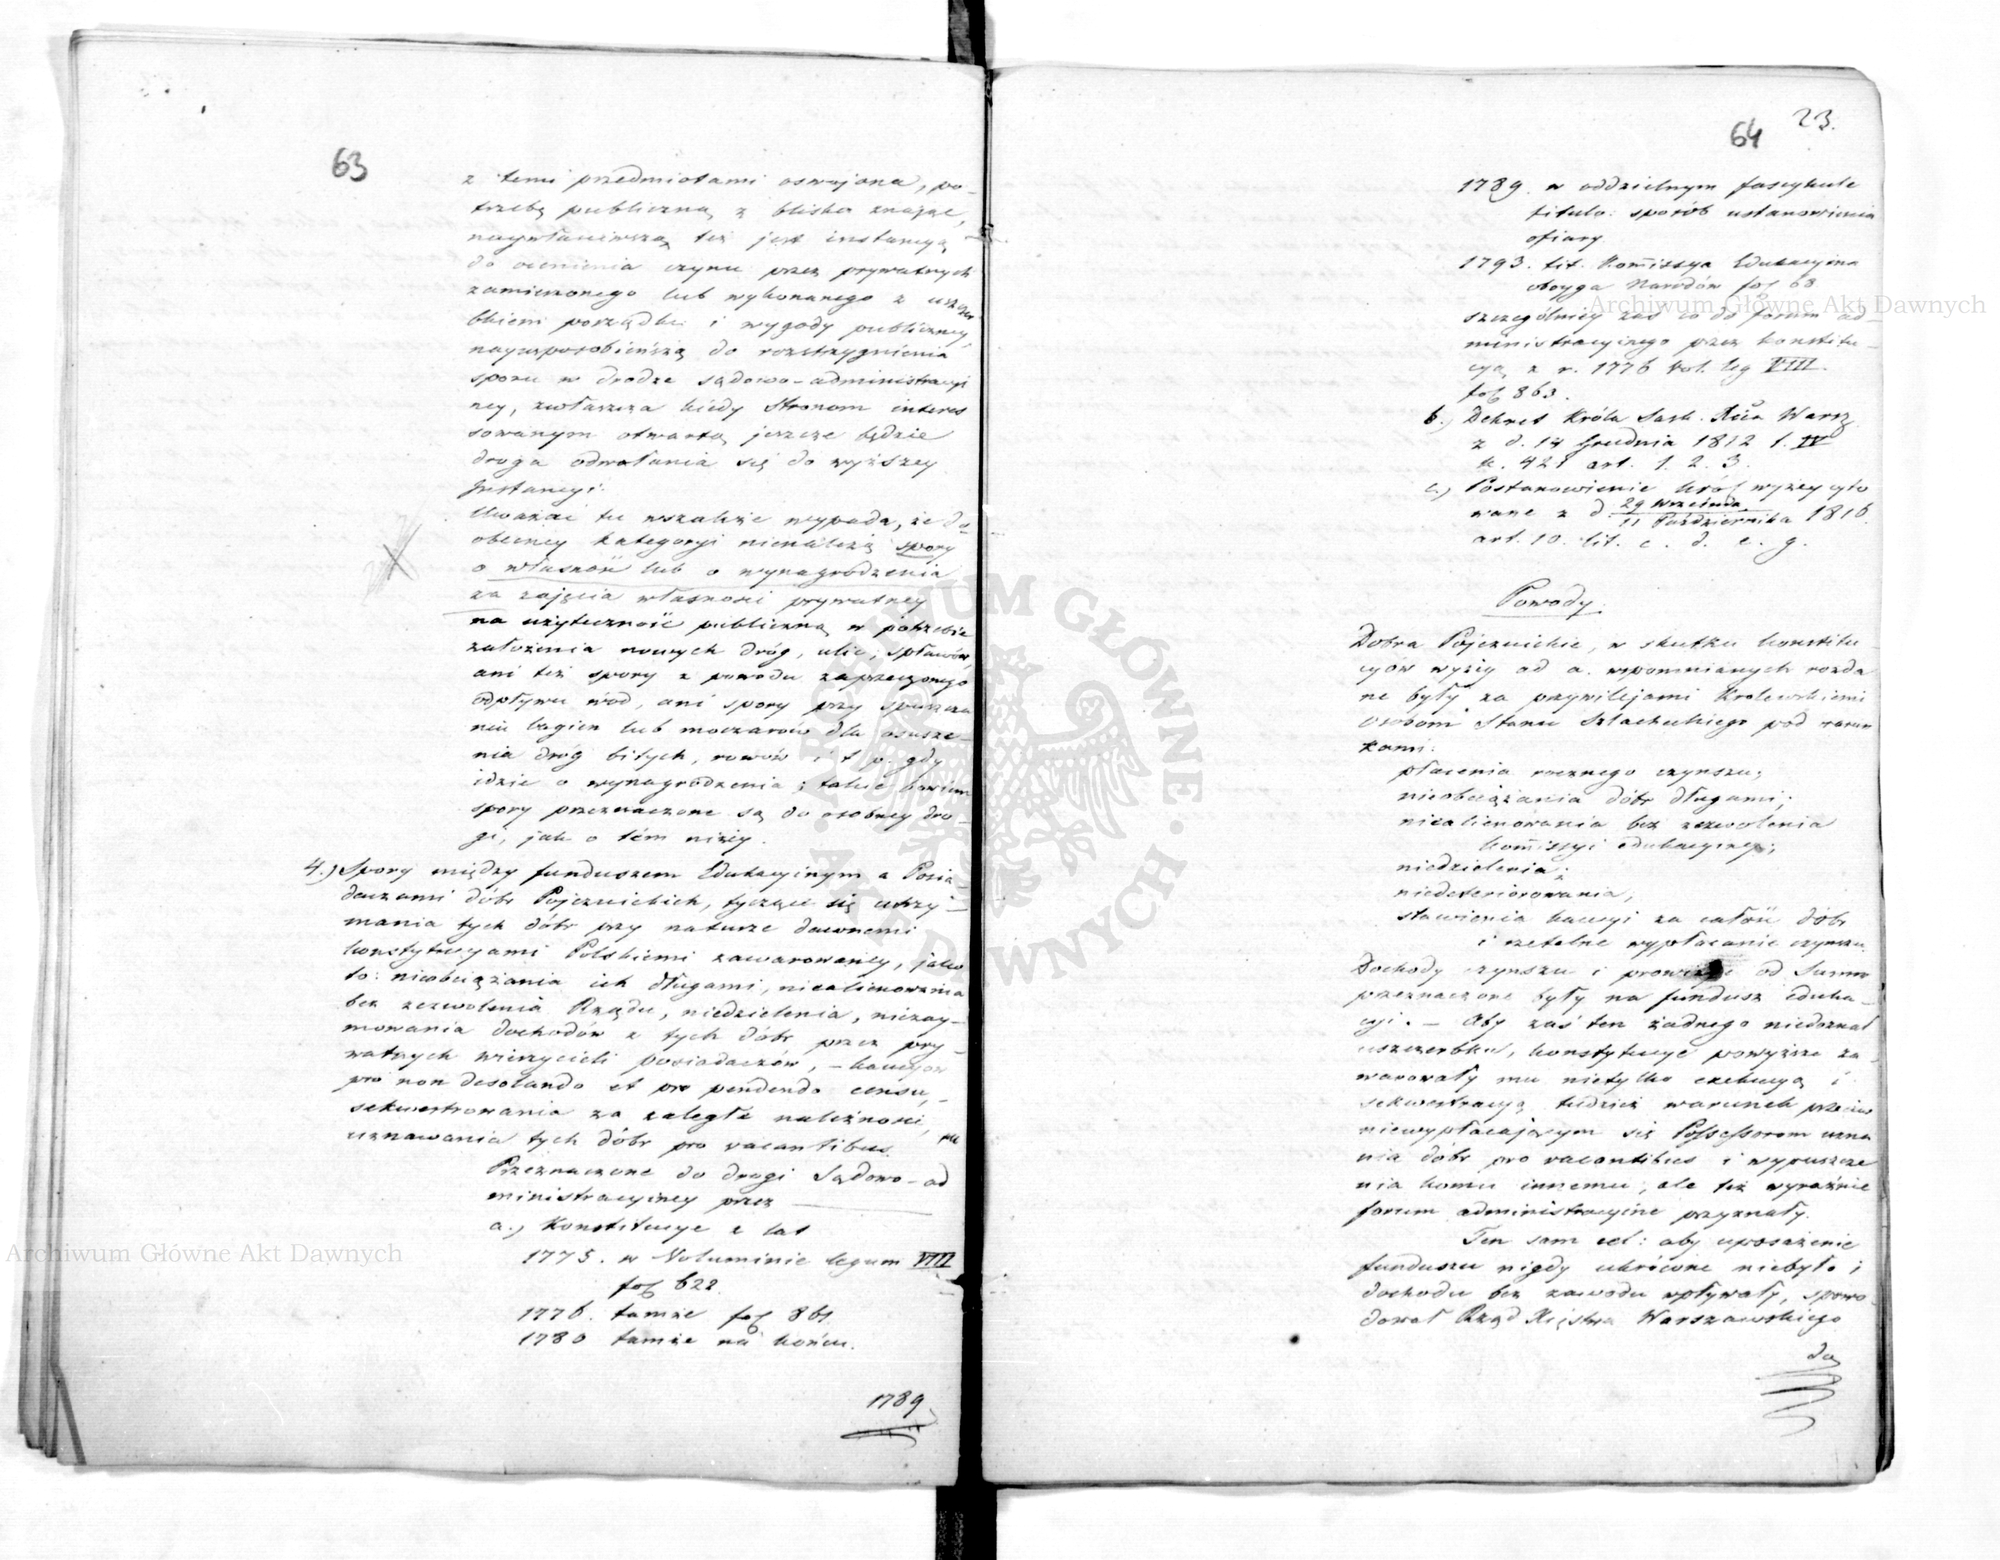 63
z temi przedmiotami oswojona, po-
trzebę publiczną z bliska znając,
naywłaściwszą też jest instancyą
do ocenienia czynu przez prywatnych
zamierzonego lub wykonanego z uszczer
bkiem porządku i wygody publiczney
nayusposobieńszą do rozstrzygnienia
sporu w drodze sądowo-administracyi
ney, zwłaszcza kiedy Stronom interes
sowanym otwartą jeszcze będzie
droga odwołania się do wyższey
Jnstancyi.
Uważać tu wszakże wypada, że do
obecney kategoryi nienależą spory
o własność lub o wynagrodzenia
za zajęcia własności prywatney
na użyteczność publiczną w potrzebie
założenia nowych dróg, ulic, spławów,
ani też spory z powodu zaprzeczonego
odpływu wód, ani spory przy spuszcza
niu bagien lub moczarów dla osusze-
nia dróg bitych, rowów i t. p. gdy
idzie o wynagrodzenia; takie bowiem
spory przeznaczone są do osobney dro-
gi, jak o tém niżey.
4.) Spory między funduszem Edukacyinym a Posia-
daczami dóbr Pojezuickich, tyczące się utrzy-
mania tych dóbr przy naturze dawnemi
konstytucyami Polskiemi zawarowaney, jako
to: nieobciążania ich długami, niealienowania
bez zezwolenia Rządu, niedzielenia, niezay-
mowania dochodów z tych dóbr przez pry-
watnych wierzycieli posiadaczów, - kaucyow
pro non desolando et pro pendendo censu, -
sekwestrowania za zaległe należności,
uznawania tych dóbr pro vacantibus.
Przeznaczone do drogi Sądowo-ad
ministracyiney przez
a.) Konstitucye z lat
1775. w Voluminie legum VIII
fol 622.
1776. tamże fol 861.
1780 tamże na końcu.
1789
64
23.
1789. w oddzielnym fascykule
titulo: sposób ustanowienia
ofiary.
1793. tit. Kommissya Edukacyina
oboyga Narodów fol 68
szczególniey zaś co do forum ad-
ministracyinego przez konstitu-
cyą z r. 1776 Vol. leg VIII.
fol 863.
b.) Dekret Króla Sask. Xcia Warsz
z d. 14 Grudnia 1812 t. IV
k. 421 art. 1. 2. 3.
c.) Postanowienie Król wyżey cyto
wane z d 29 Września / 11 Października 1816
art. 10. lit. c. d. e. g.
Powody.
Dobra Pojezuickie, w skutku konstitu-
cyow wyżey ad a. wspomnianych rozda
ne były za przywilejami Krolewskiemi
Osobom Stanu Szlacheckiego pod warun
kami:
płacenia rocznego czynszu;
nieobciążania dóbr długami;
niealienowania bez zezwolenia
Kommissyi edukacyiney;
niedzielenia;
niedeteriorowania,
stawienia kaucyi za całość dóbr
i rzetelne wypłacanie czynszu.
Dochody czynszu i prowizye od Summ
przeznaczone były na fundusz eduka-
cyi. - Aby zaś ten żadnego niedoznał
uszczerbku, konstytucye powyższe za-
warowały mu nietylko exekucyą i
sekwestracyą tudzież warunek przeciw
niewypłacającym się Possessorom uzna
nia dóbr pro vacantibus i wypuszcze
nia komu innemu, ale też wyraźnie
forum administracyine przyznały.
Ten sam cel: aby uposażenie
funduszu nigdy ukrócone niebyło i
dochodu bez zawodu wpływały, spowo
dował Rząd Xięstwa Warszawskiego
do
Archiwum Główne Akt Dawnych
Archiwum Główne Akt Dawnych
ARCHIWUM GŁÓWNE · AKT DAWNYCH ·